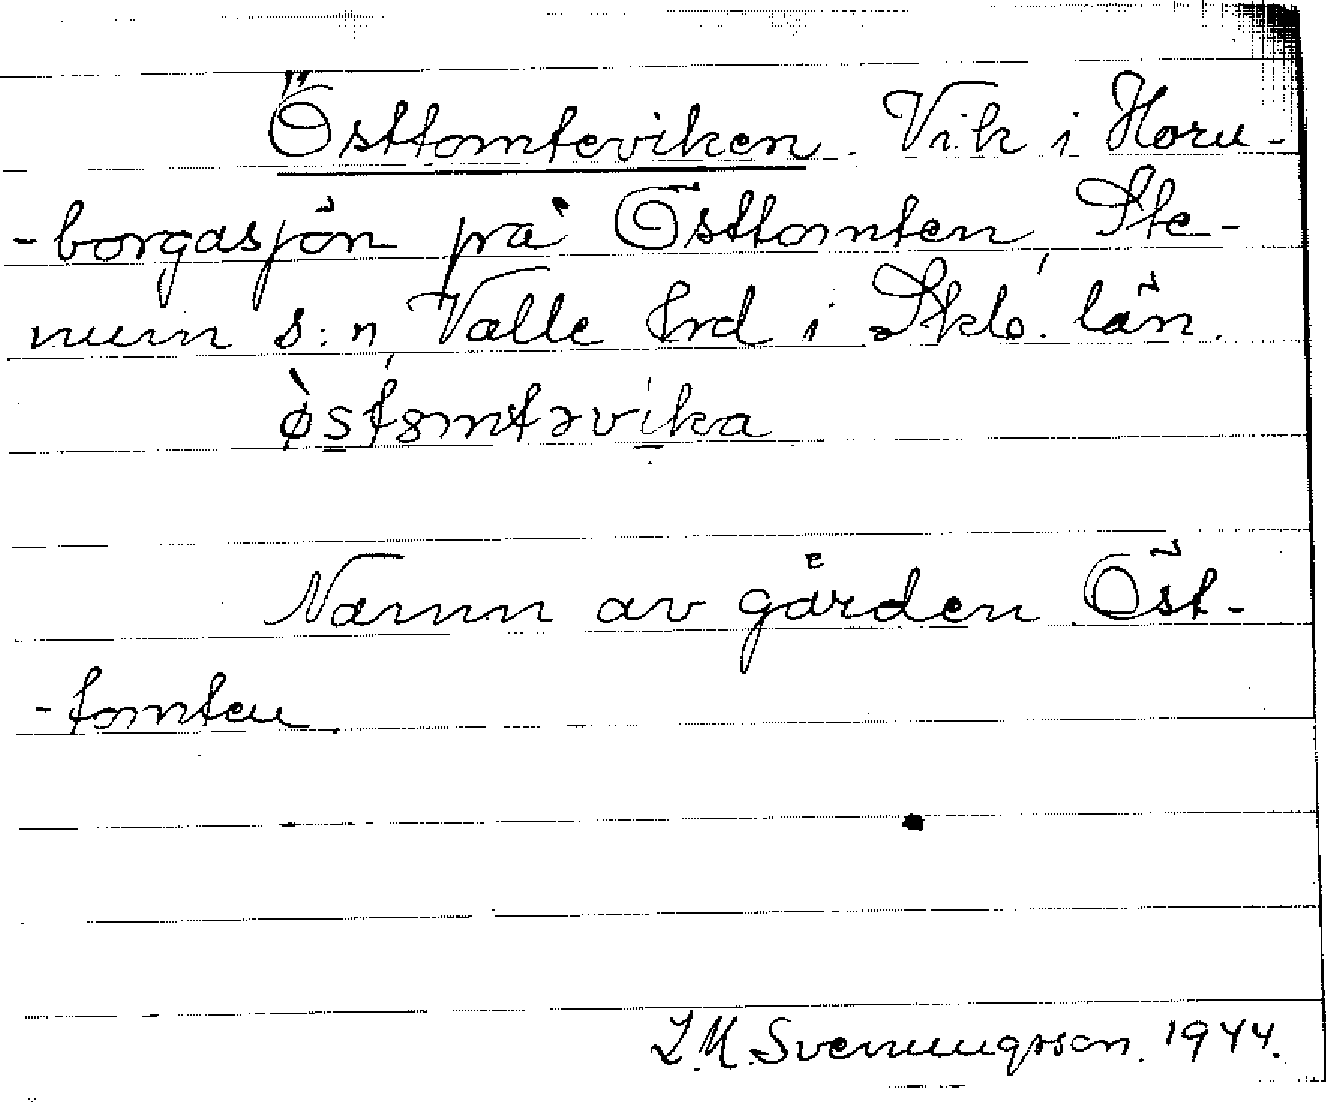 Östtomteviken. Vik i Horn-
-borgasjön på Östtomten, Ste-
num s:n, Valle hrd i Skb. län.
ø̀stomtəvika
Namn av gården Öst-
-tomten.
L.M. Svenungsson. 1944.